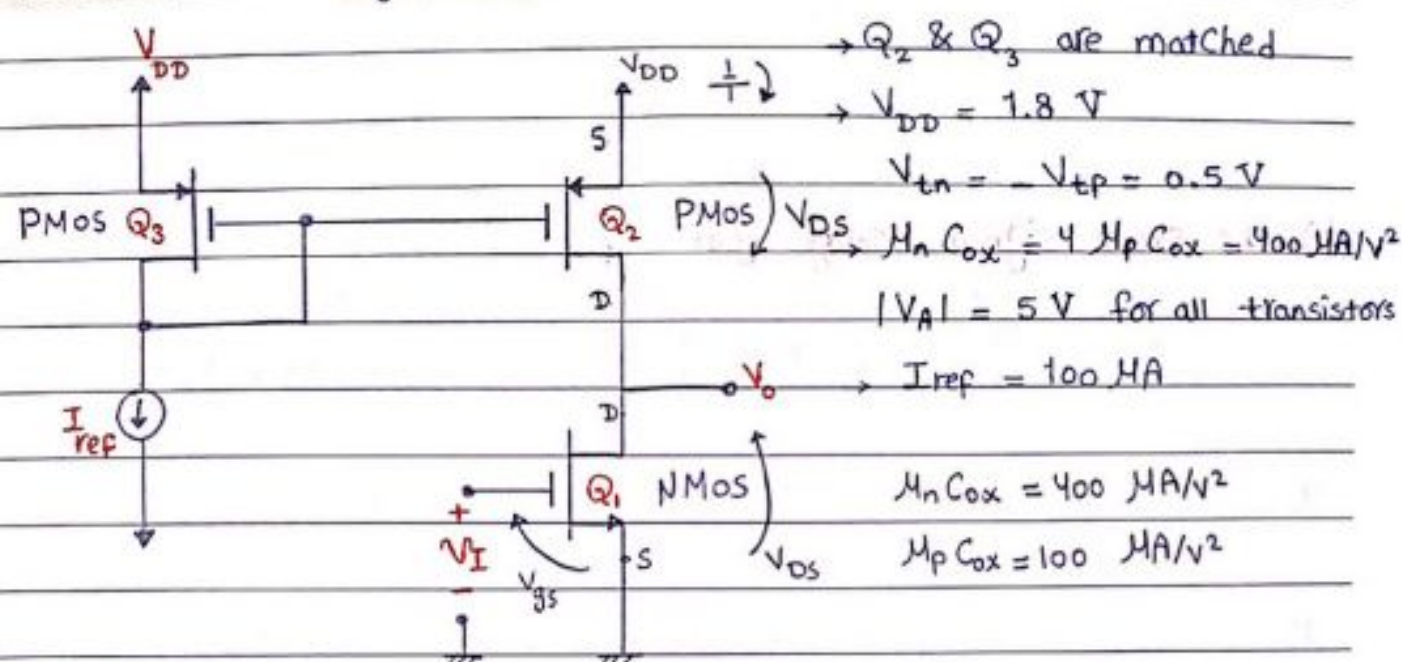 V_DD
V_DD
S
PMOS Q3
Q2
PMOS
V_DS
D
D
Vo
I_ref
Q1
NMOS
+
V_I
-
Vgs
S
V_DS
→ Q2 & Q3 are matched
→ V_DD = 1.8 V
Vtn = - Vtp = 0.5 V
→ Mn Cox = 4 Mp Cox = 400 MA/V²
|V_A| = 5 V for all transistors
→ Iref = 100 MA
Mn Cox = 400 MA/V²
Mp Cox = 100 MA/V²